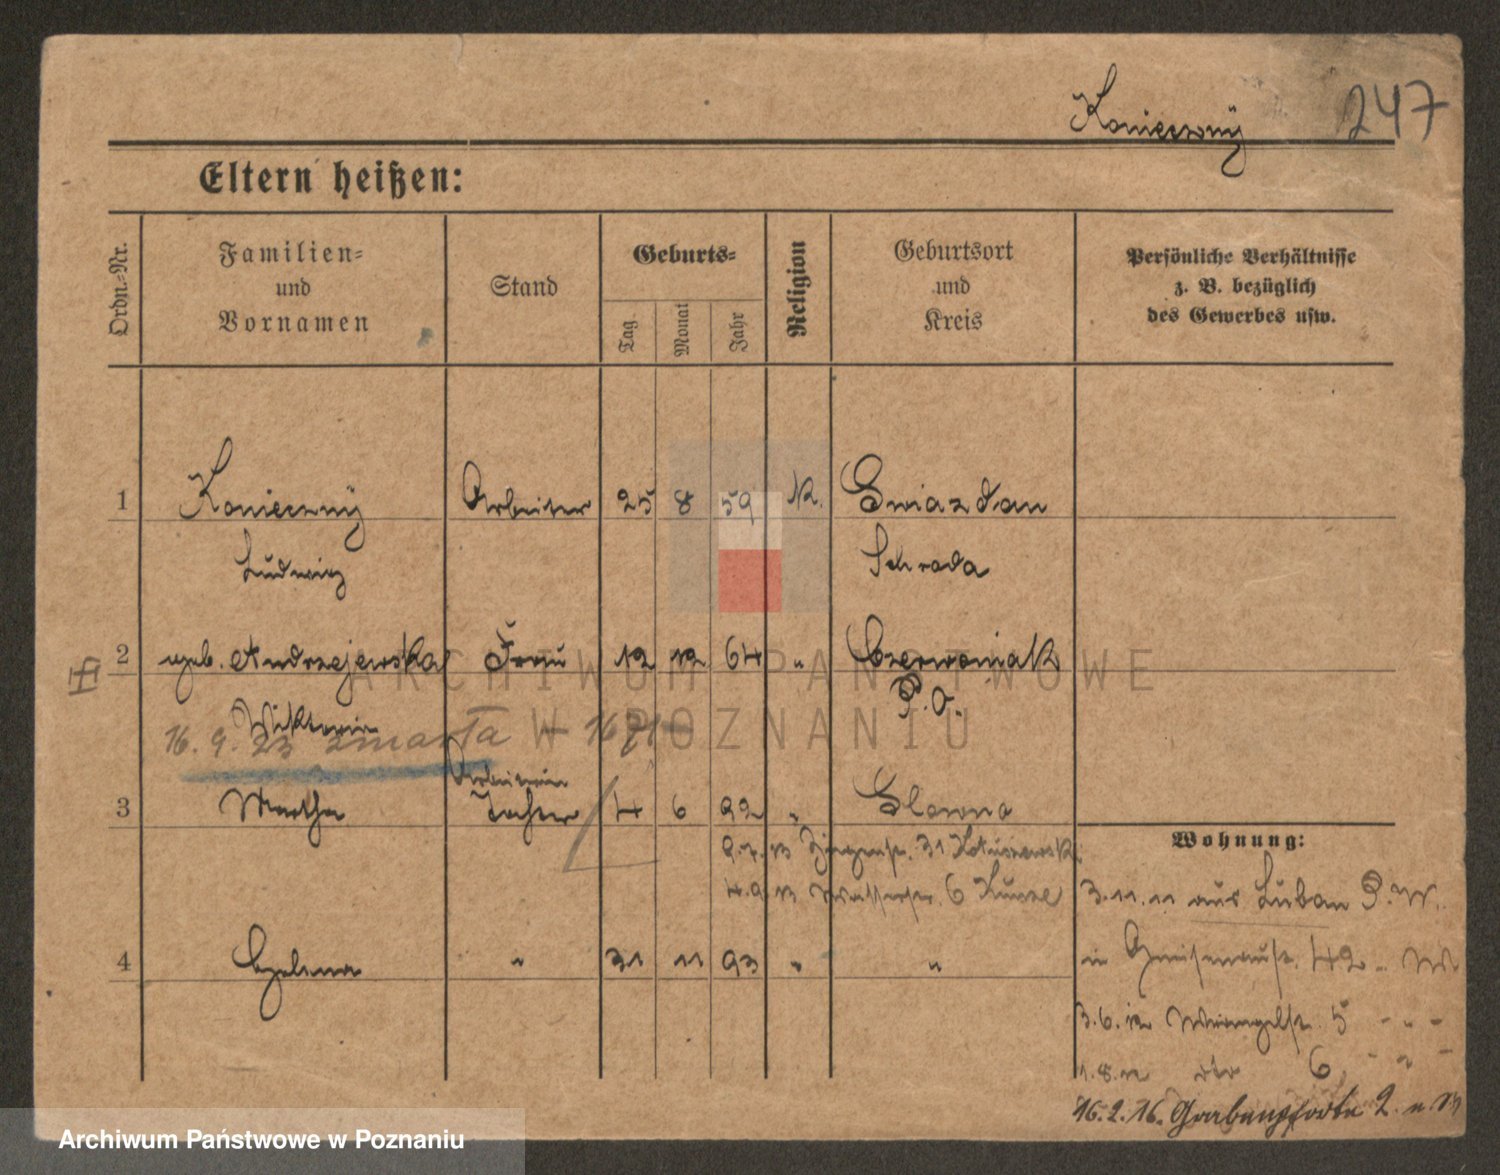 Koniecznÿ 247
Eltern heißen:
Ordn.-Nr.
Familien-
und
Vornamen
Stand
Geburts-
Tag
Monat
Jahr
Religion
Geburtsort
und
Kreis
Persönliche Verhältnisse
z. B. bezüglich
des Gewerbes usw.
1 Koniecznÿ Arbeiter 25 8 59 K. Gwiazdau
Ludwig Schroda
2 geb. Andrzejewska Frau 12 12 64 " Czerwoniak
Wiktoria P.O.
16. 9. 23 zmarła
Arbeiterin
3 Martha Tochter 4 6 92 " Glowno
Wohnung:
9.7.13 31
4.9.13 Wasserstr. 6
3.11.11 aus Luban P.W.
4 Helena " 31 11 93 " "
in Gneisenaustr. 42
3.6.12 5
1.8.12 dto 6
16.2.16. Grabenpforte 2.
ARCHIWUM PAŃSTWOWE
W POZNANIU
Archiwum Państwowe w Poznaniu